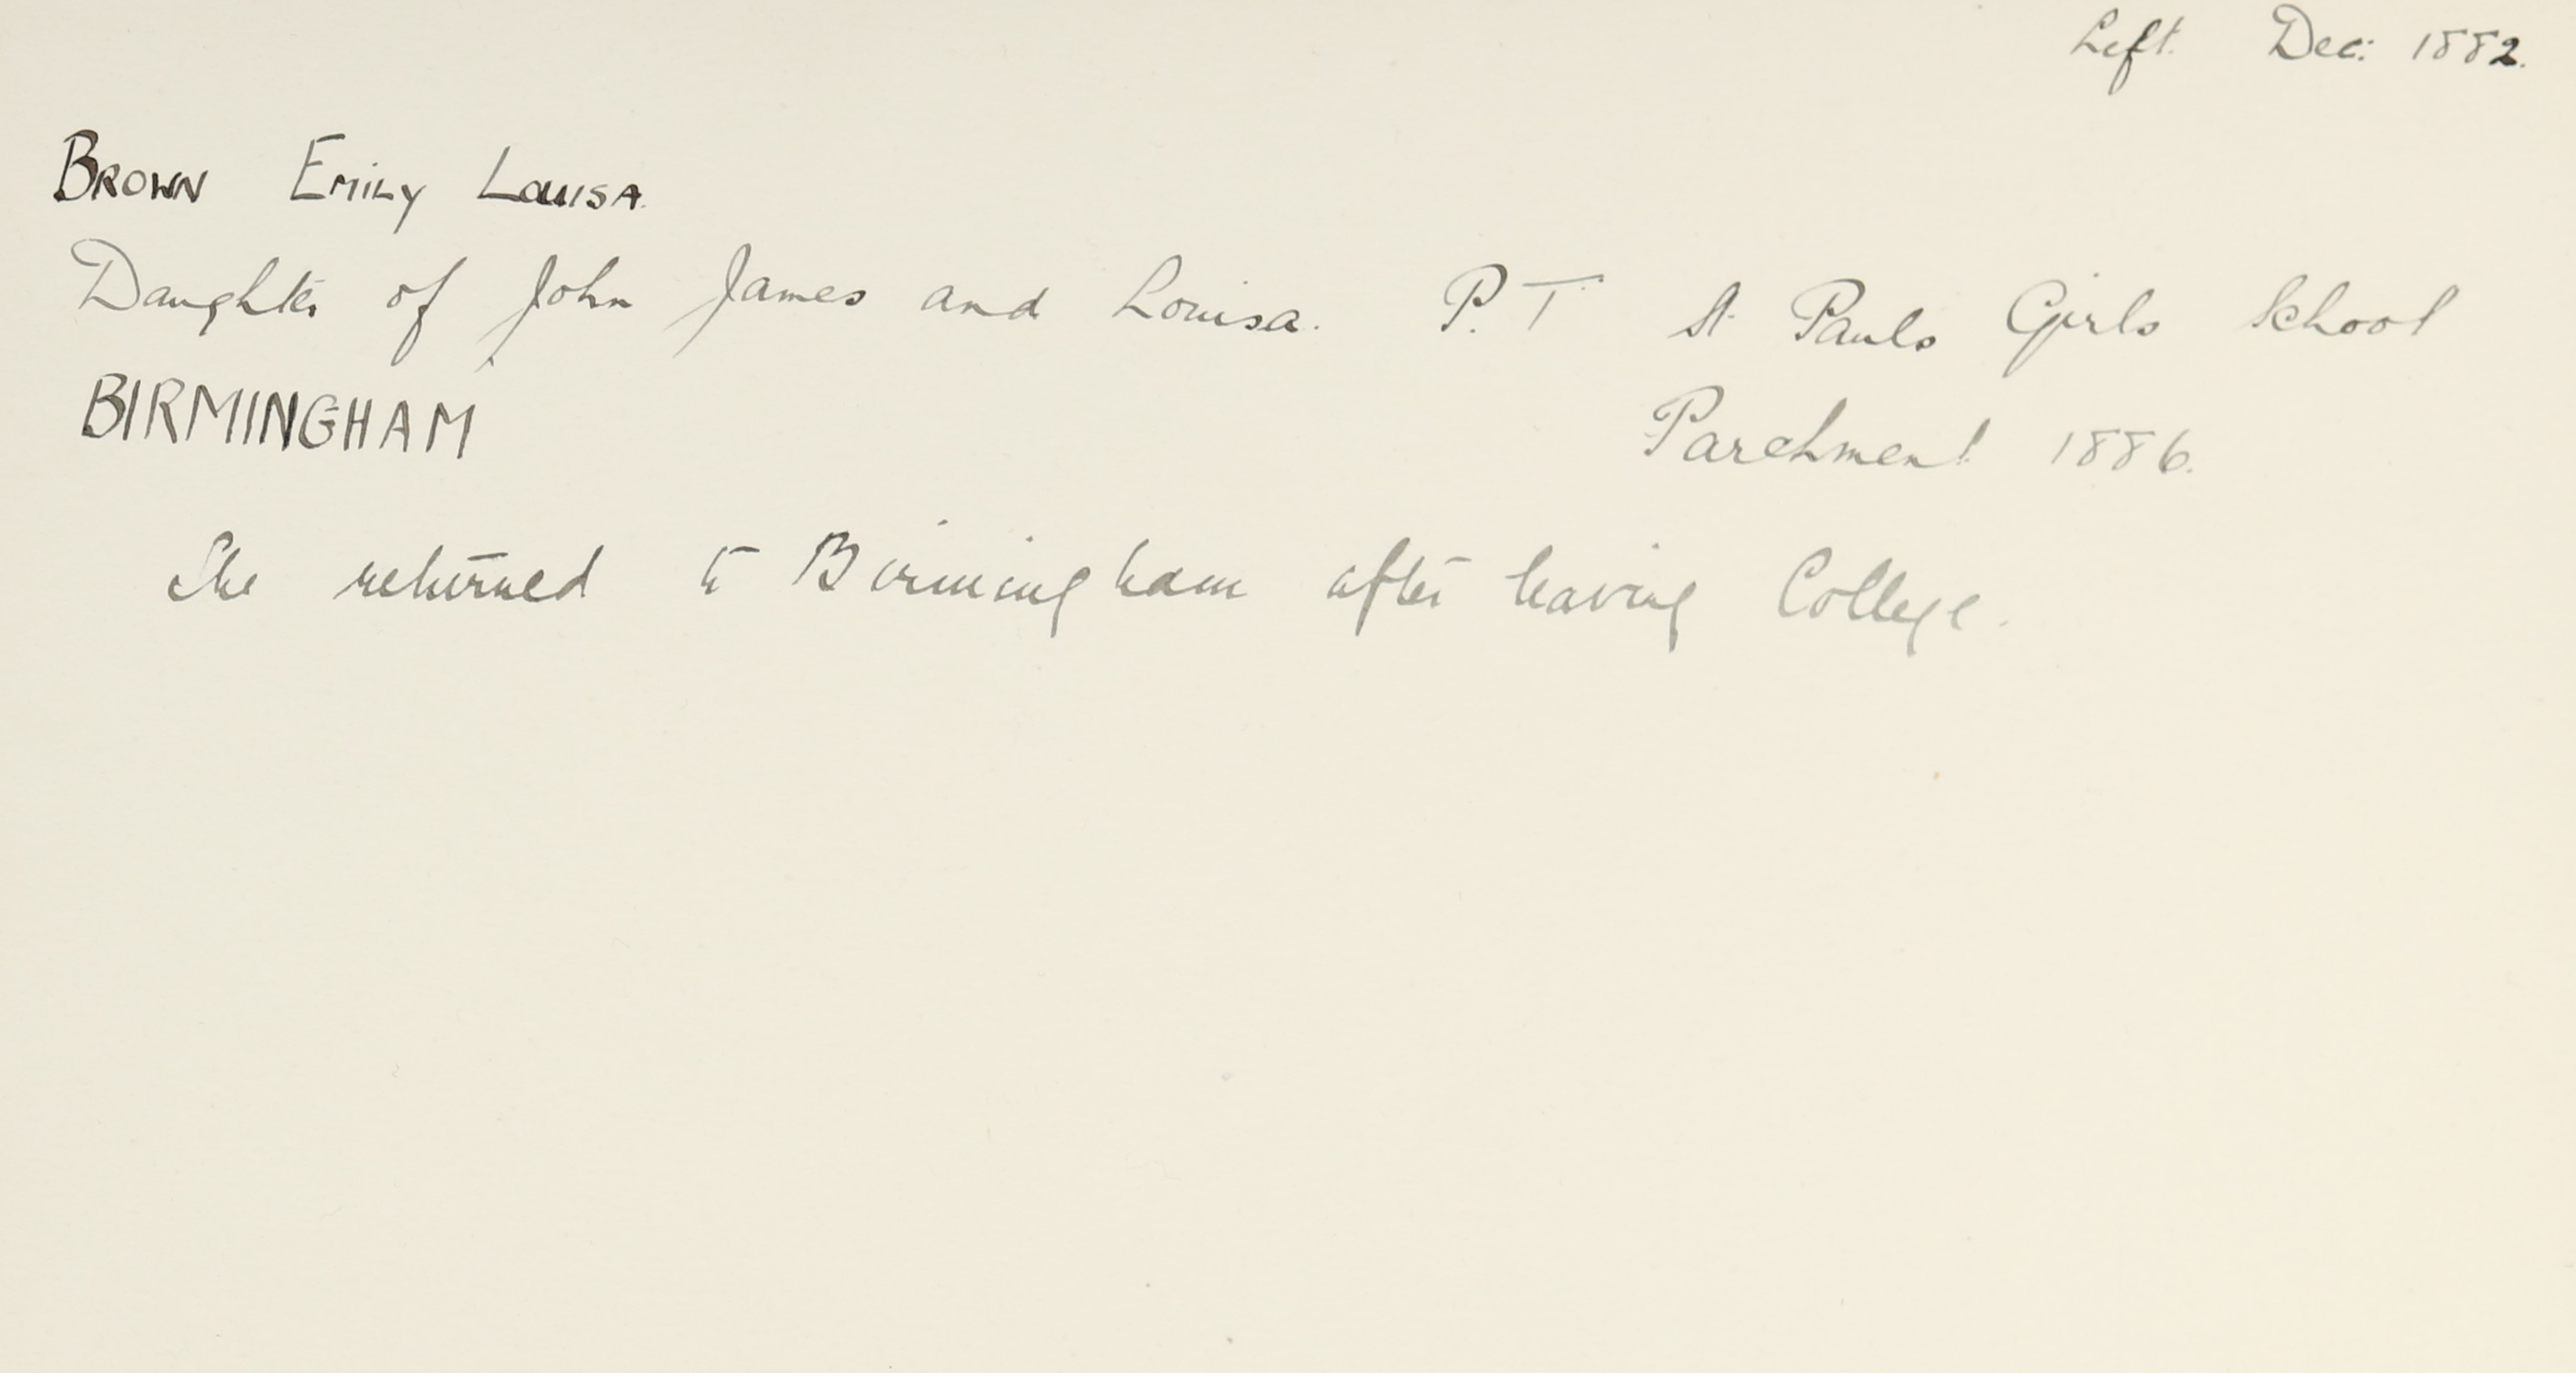 Left. Dec: 1882.
BROWN EMILY LOUISA.
Daughter of John James and Louisa. P.T. St. Pauls Girls School
BIRMINGHAM Parchment 1886.
She returned to Birmingham after leaving College.